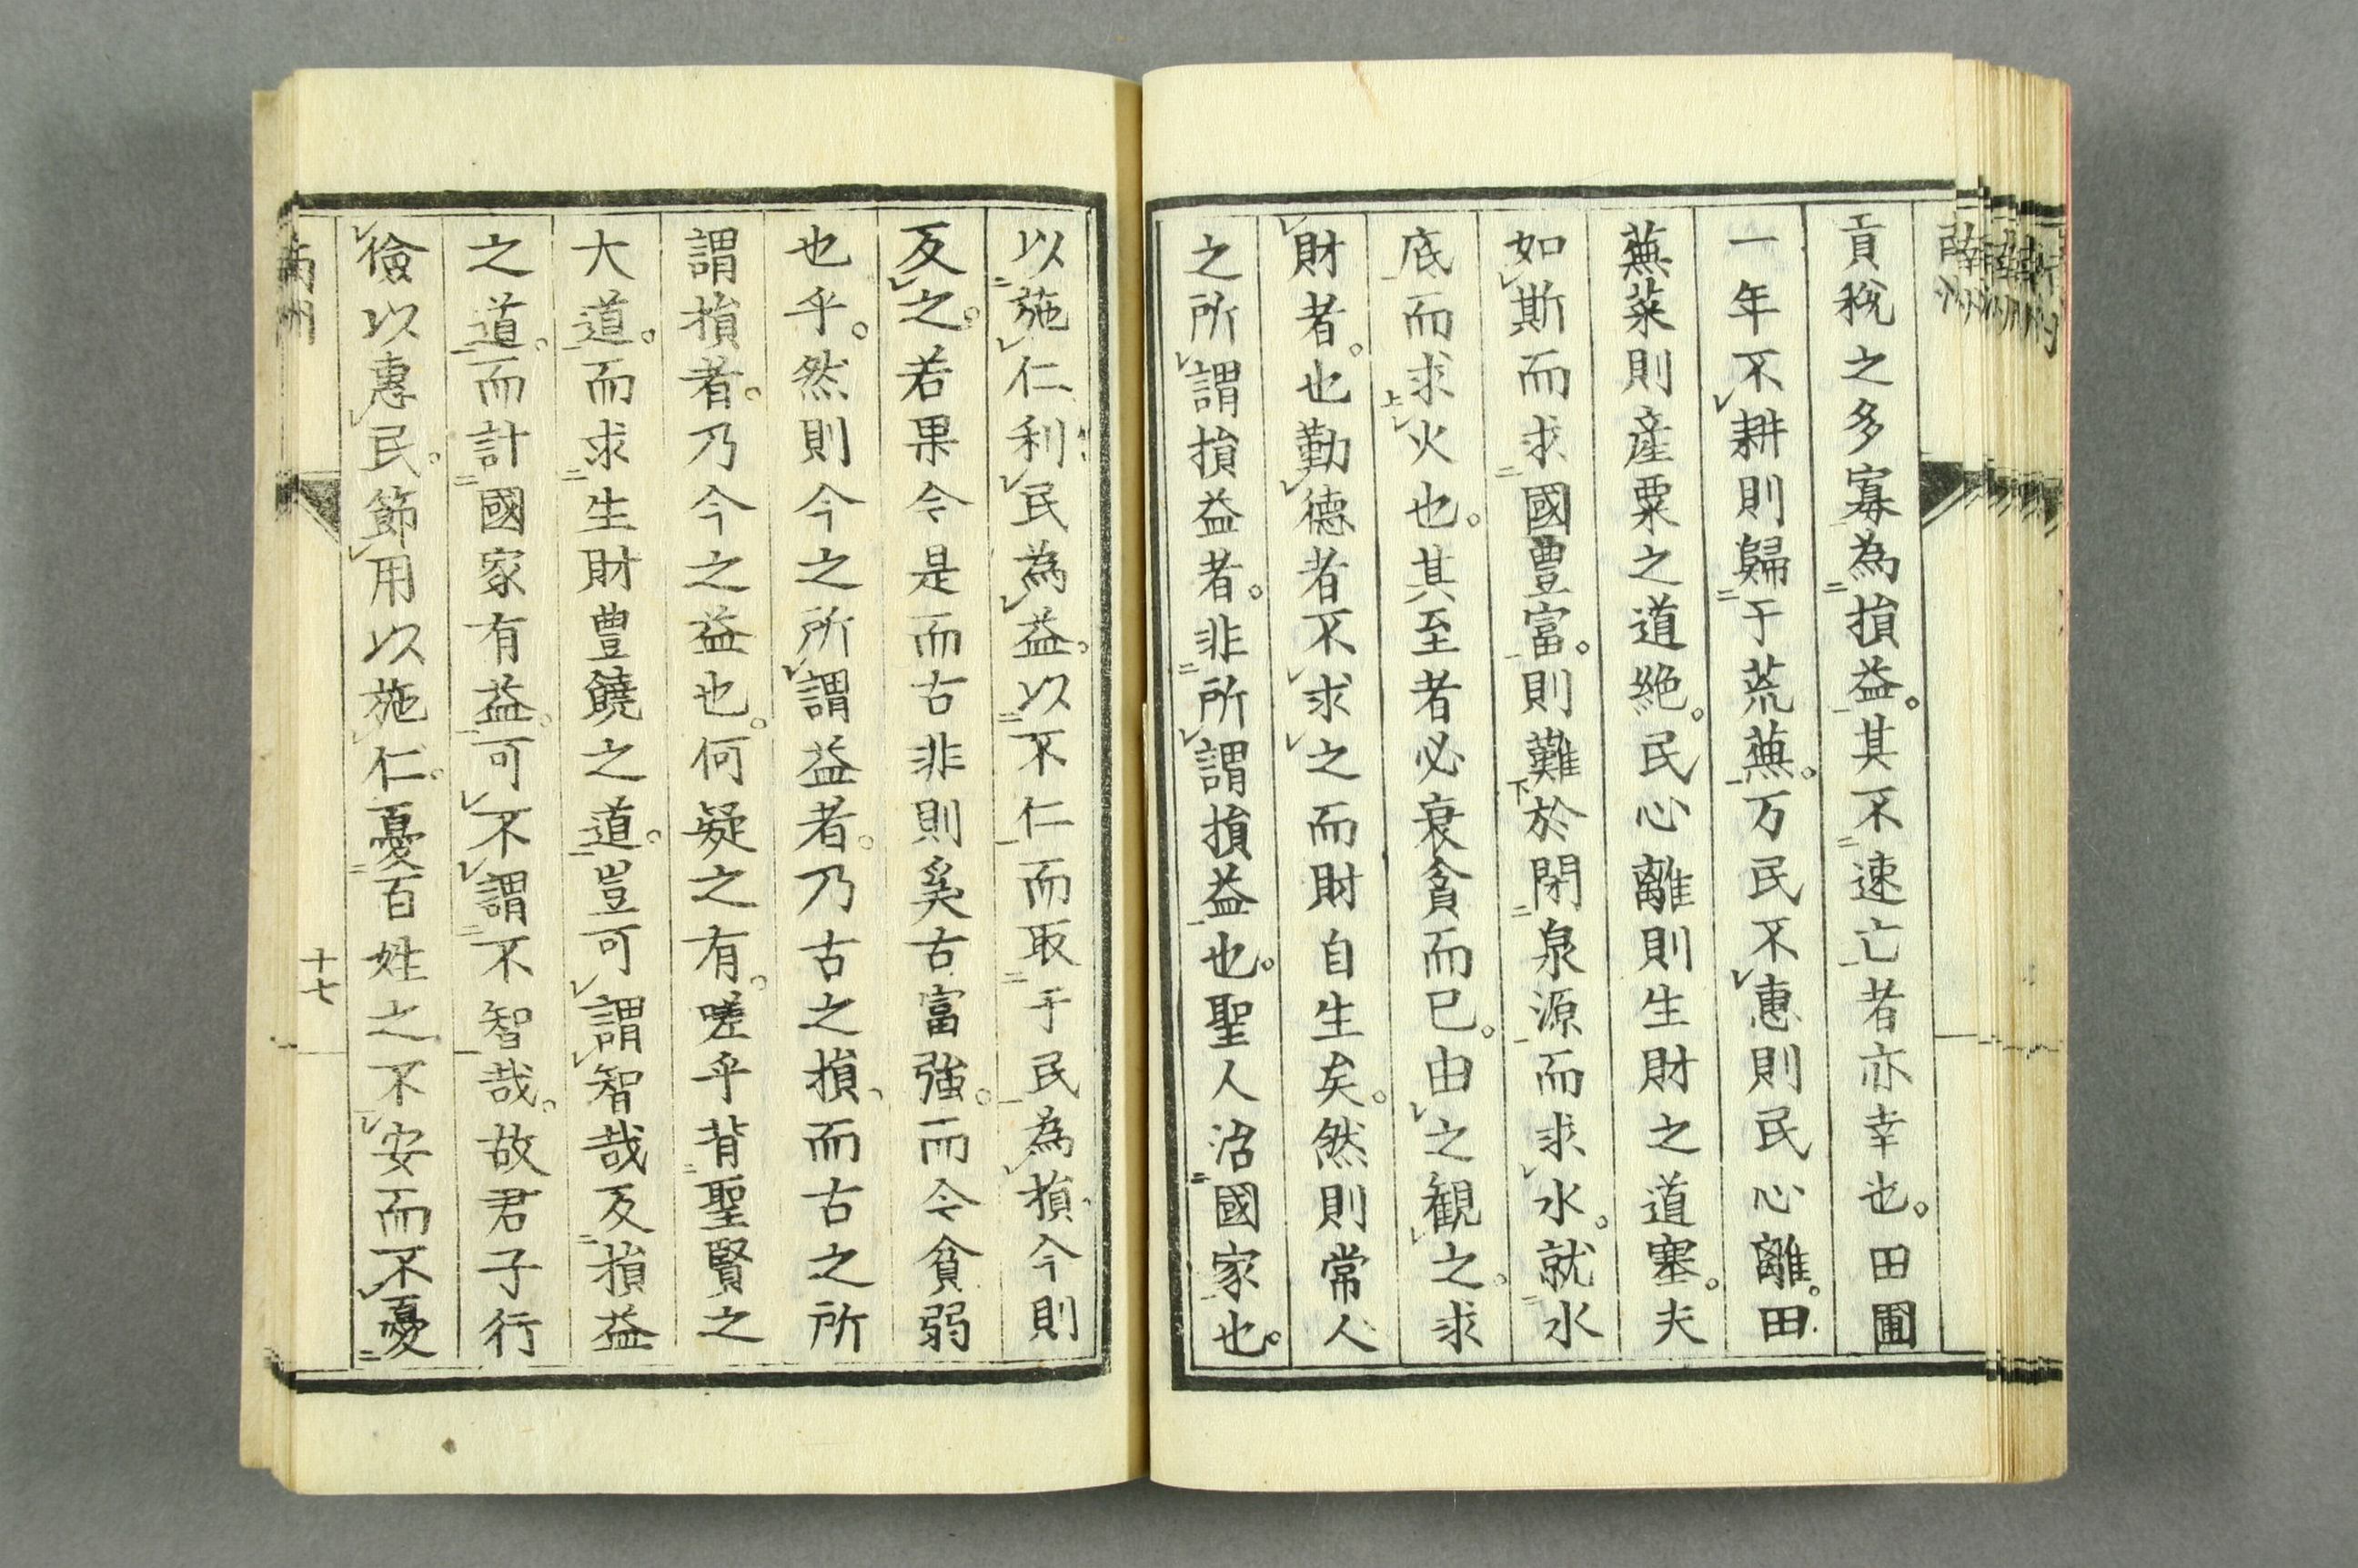 貢稅之多寡為損益。其不速亡者亦幸也。田圃
一年不耕則歸于荒蕪。万民不惠則民心離。田
蕪萊則產粟之道絶。民心離則生財之道塞。夫
如斯而求國豊富。則難於閉泉源而求水。就水
底而求火也。其至者必衰貧而已。由之観之。求
財者。也勤德者不求之而財自生矣。然則常人
之所謂損益者。非所謂損益也。聖人治國家也。
以施仁利民為益。以不仁而取于民為損、今則
反之。若果今是而古非則奚古富強。而今貧弱
也乎。然則今之所謂益者。乃古之損、而古之所
謂損者。乃今之益也。何疑之有。嗟乎背聖賢之
大道。而求生財豊饒之道。豈可謂智哉反損益
之道。而計國家有益。可不謂不智哉。故君子行
儉以惠民。節用以施仁。憂百姓之不安而不憂
十七